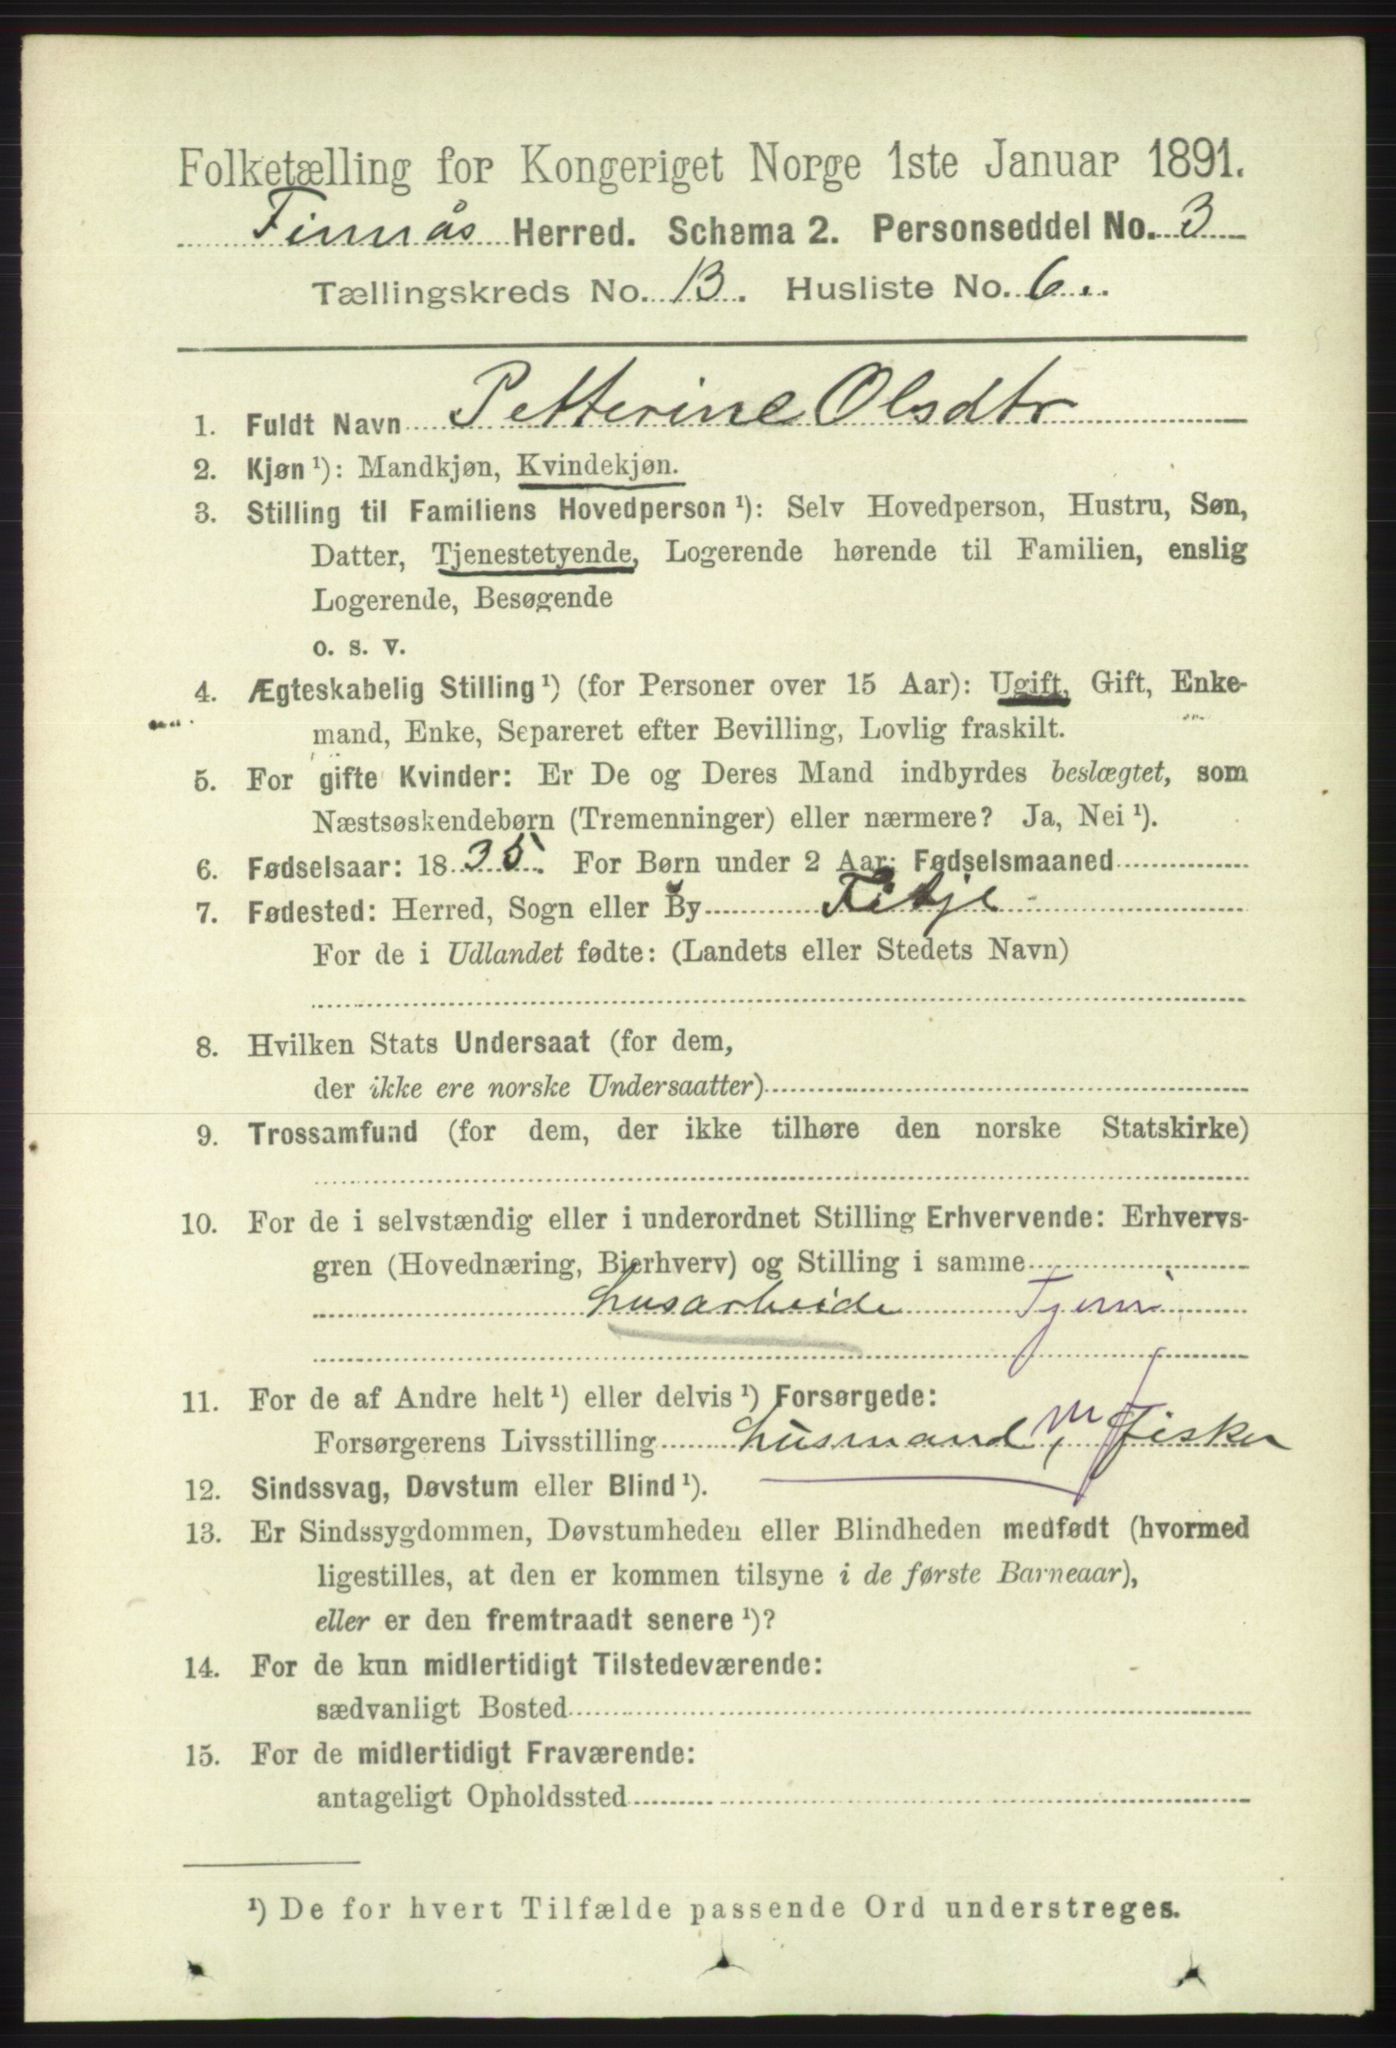 Folketælling for Kongeriget Norge 1ste Januar 1891.
Finnås Herred. Schema 2. Personseddel No. 3
Tællingskreds No. 13. Husliste No. 6.
1. Fuldt Navn Petterine Olsdtr
2. Kjøn ¹): Mandkjøn, Kvindekjøn.
3. Stilling til Familiens Hovedperson ¹): Selv Hovedperson, Hustru, Søn,
Datter, Tjenestetyende, Logerende hørende til Familien, enslig
Logerende, Besøgende
o. s. v.
4. Ægteskabelig Stilling ¹) (for Personer over 15 Aar): Ugift, Gift, Enke-
mand, Enke, Separeret efter Bevilling, Lovlig fraskilt.
5. For gifte Kvinder: Er De og Deres Mand indbyrdes beslægtet, som
Næstsøskendebørn (Tremenninger) eller nærmere? Ja, Nei ¹).
6. Fødselsaar: 1835. For Børn under 2 Aar: Fødselsmaaned
7. Fødested: Herred, Sogn eller By Fitje
For de i Udlandet fødte: (Landets eller Stedets Navn)
8. Hvilken Stats Undersaat (for dem,
der ikke ere norske Undersaatter)
9. Trossamfund (for dem, der ikke tilhøre den norske Statskirke)
10. For de i selvstændig eller i underordnet Stilling Erhvervende: Erhvervs-
gren (Hovednæring, Bierhverv) og Stilling i samme
husarbeide
11. For de af Andre helt ¹) eller delvis ¹) Forsørgede:
Forsørgerens Livsstilling husmand, m fisker
12. Sindssvag, Døvstum eller Blind ¹).
13. Er Sindssygdommen, Døvstumheden eller Blindheden medfødt (hvormed
ligestilles, at den er kommen tilsyne i de første Barneaar),
eller er den fremtraadt senere ¹)?
14. For de kun midlertidigt Tilstedeværende:
sædvanligt Bosted
15. For de midlertidigt Fraværende:
antageligt Opholdssted
¹) De for hvert Tilfælde passende Ord understreges.